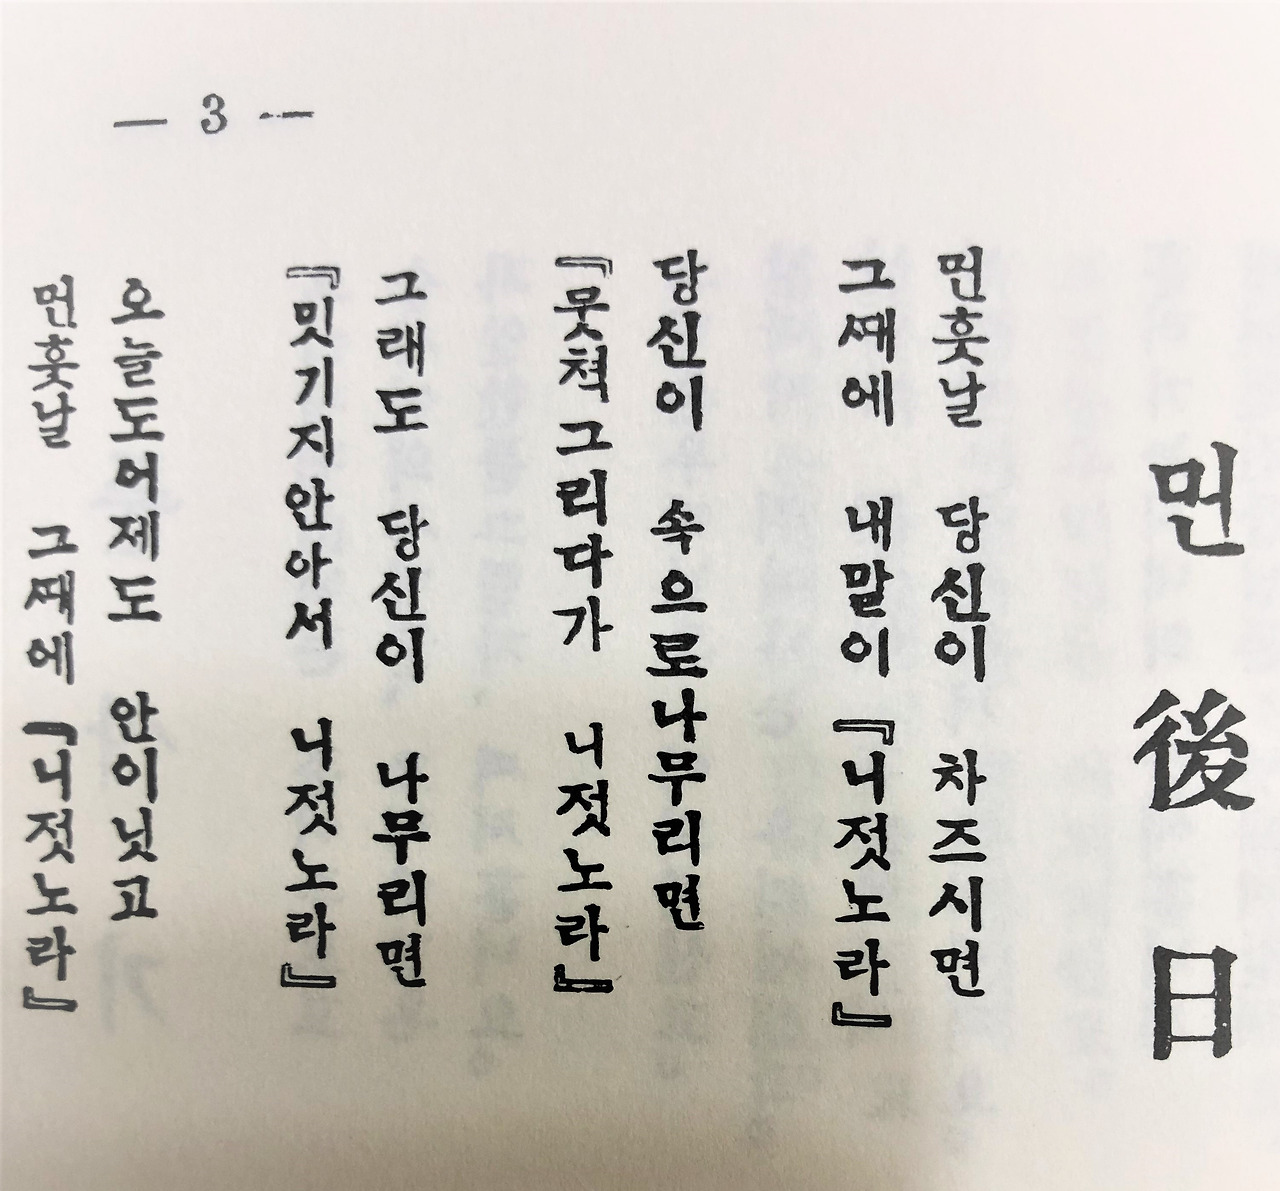 — 3 —
먼 後 日
먼훗날 당신이 차즈시면
그ᄯᅢ에 내말이 『니젓노라』
당신이 속으로나무리면
『뭇쳑그리다가 니젓노라』
그래도 당신이 나무리면
『밋기지안아서 니젓노라』
오늘도어제도 안이닛고
먼훗날 그ᄯᅢ에 『니젓노라』